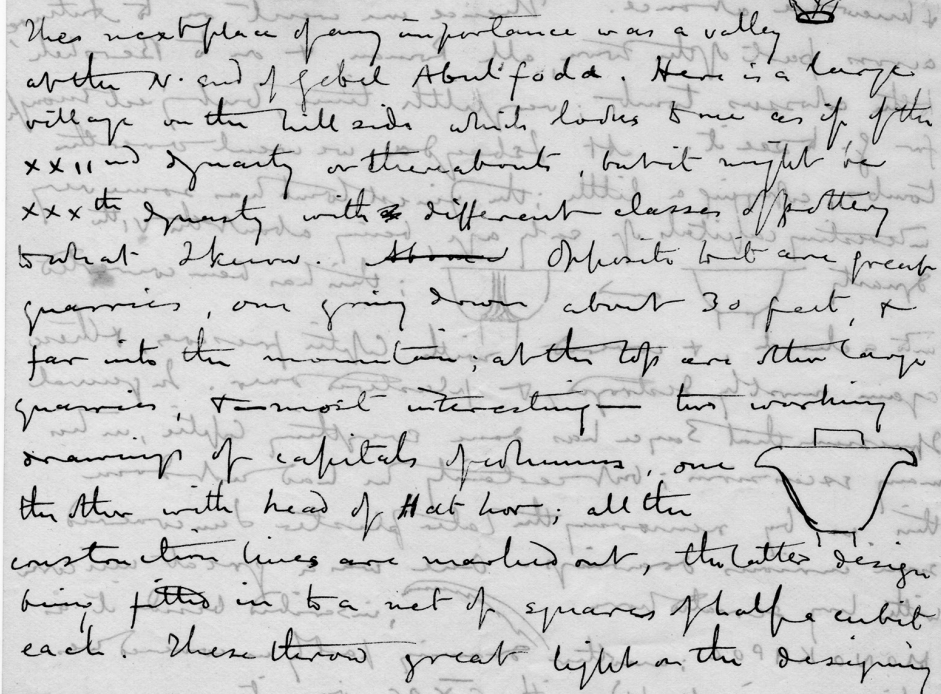 The next place of any importance was a valley
at the N. end of Gebel Abulfoda. Here is a large
village on the hill side which looks to me as if of the
XXIInd dynasty or thereabouts, but it might be
XXXth dynasty with different classes of pottery
to what I know. Opposite to it are great
quarries, one going down about 30 feet, &
far into the mountain; at the top are other large
quarries, & — most interesting — two working
drawings of capitals of columns, one
the other with head of Hathor; all the
construction lines are marked out, the latter design
being fitted in to a net of squares of half a cubit
each. These throw great light on the designing